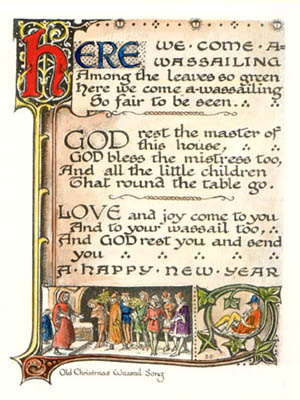 HERE WE · COME · A-
WASSAILING
Among the leaves so green
Here we come a-wassailing
So fair to be seen. ∴ ∴
GOD rest the master of
this house, ∴ ∴
GOD bless the mistress too,
And all the little children
That round the table go.
LOVE and joy come to you
And to your wassail too, ∴
And GOD rest you and send
you ∴ ∴ ∴ ∴ ∴
A · HAPPY · NEW · YEAR
Old Christmas Wassail Song